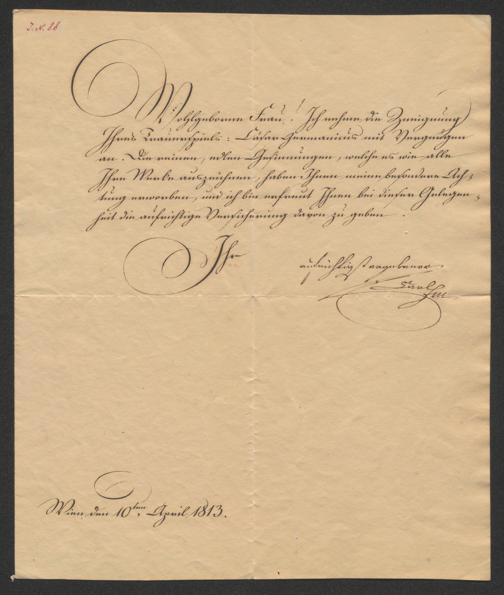 J.N. 88
Wohlgeborne Frau! Ich nehme die Zueignung
Ihres Trauerspiels: Cäsar Germanicus mit Vergnügen
an. Die reinen, edlen Gesinnungen, welche es wie alle
Ihre Werke auszeichnen, haben Ihnen meine besondere Ach-
tung erworben, und ich bin erfreut Ihnen bei dieser Gelegen-
heit die aufrichtige Versicherung davon zu geben.
Ihr
aufrichtigst ergebener
Carl
Wien den 10ten April 1813.